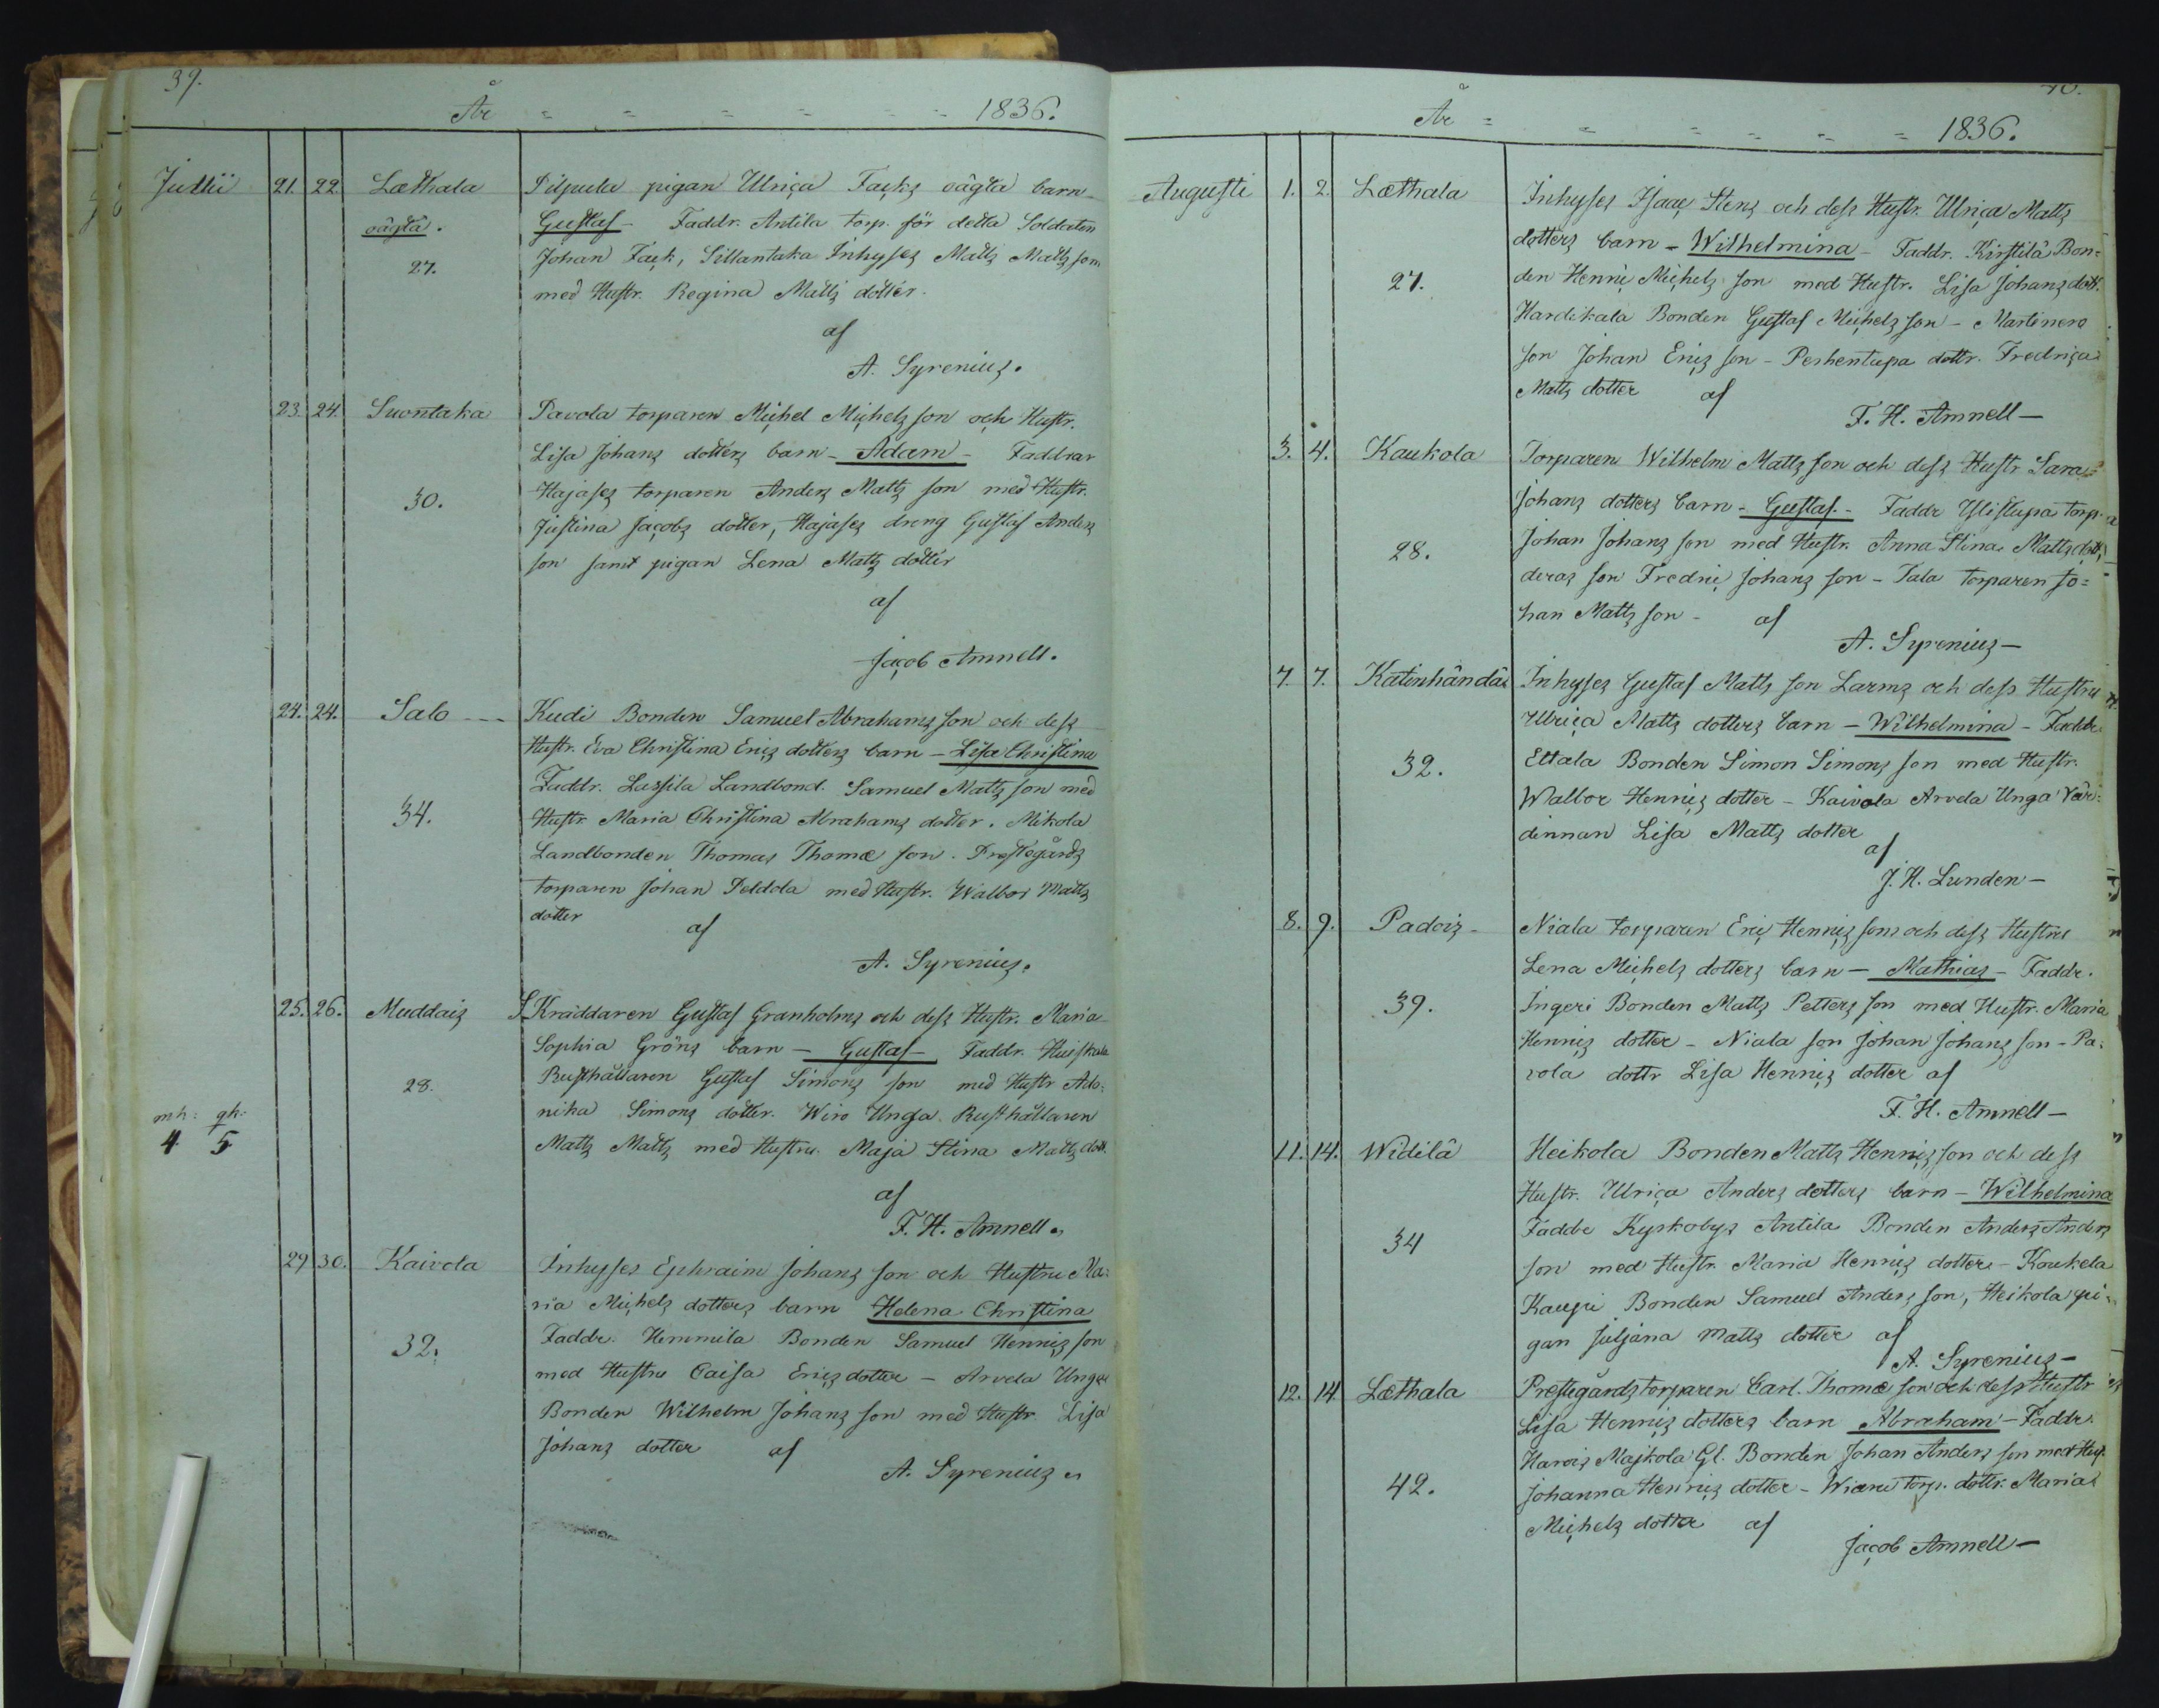 39.
År = = = = = 1836.
Julii 21. 22 Læthala Pilpula pigan Ulrica Facks oägta barn
oägta. Gustaf - Faddr. Antila torp. för detta Soldaten
27. Johan Fack, Sillantaka Inhyses Matts Mattsson
med Hustr. Regina Matts dotter.
af
A. Syrenius.
23. 24. Suontaka Pavola torparen Michel Michels son och Hustr.
Lisa Johans dotters barn - Adam - Faddrar
30. Hajases torparen Anders Matts son med Hustr.
Justina Jacobs dotter, Hajases dreng Gustaf Anders
son samt pigan Lena Matts dotter
af
Jacob Amnell.
24. 24. Salo - Kudi Bonden Samuel Abrahams son och dess
Hustr. Eva Christina Erics dotters barn - Lisa Christina
Faddr. Lassila Landbond. Samuel Matts son med
34. Hustr. Maria Christina Abrahams dotter. Mikola
Landbonden Thomas Thomæ son. Prestegårds
torparen Johan Peldola med Hustr. Walbor Matts
dotter af
A. Syrenius.
25. 26. Muddais Skräddaren Gustaf Granholms och dess Hustr. Maria
Sophia Gröns barn - Gustaf - Faddr. Huiskala
28. Rusthållaren Gustaf Simons son med Hustr Ado=
mh: qh: nika Simons dotter. Wiro Unga Rusthållaren
4. 5 Matts Matts med Hustru Maja Stina Matts dott.
af
F. H. Amnell.
29 30. Kaivola Inhyses Ephraim Johans son och Hustru Ma=
ria Michels dotters barn Helena Christina
32. Faddr. Hemmila Bonden Samuel Henrics son
med Hustru Caisa Erics dotter - Arvela Unga
Bonden Wilhelm Johans son med Hustr. Lisa
Johans dotter af
A. Syrenius
40.
År = = = = = 1836.
Augusti 1. 2. Læthala Inhyses Isaac Stens och dess Hustr. Ulrica Matts
dotters barn - Wilhelmina - Faddr. Kirstilä Bon=
27. den Henric Michels son med Hustr. Lisa Johans dott.
Hardikala Bonden Gustaf Michels son - Martinero
son Johan Erics son - Pershentupa dottr. Fredrica
Matts dotter af
F. H. Amnell -
3. 4. Kaukola Torparen Wilhelm Matts son och dess Hustr Sara
Johans dotters barn - Gustaf - Faddr Ylistupa torp.
28. Johan Johans son med Hustr. Anna Stina Matts dott,
deras son Fredric Johans son - Tala torparen Jo=
han Matts son - af
A. Syrenius -
7. 7. Katinhändä Inhyses Gustaf Matts son Larms och dess Hustru
Ulrica Matts dotters barn - Wilhelmina - Faddr.
32. Ettala Bonden Simon Simons son med Hustr.
Walbor Henrics dotter - Kaivola Arvela Unga Vär=
dinnan Lisa Matts dotter
af
J. H. Lunden -
8. 9. Padois - Niala torparen Eric Henrics son och dess Hustru
Lena Michels dotters barn - Mathias - Faddr.
39. Ingeri Bonden Matts Petters son med Hustr. Maria
Henrics dotter - Niala son Johan Johans son - Pa=
vola dottr Lisa Henrics dotter af
F. H. Amnell -
11. 14. Widilä Heikola Bonden Matts Henrics son och dess
Hustr. Ulrica Anders dotters barn - Wilhelmina
34 Faddr Kyrkobys Antila Bonden Anders Anders
son med Hustr. Maria Henrics dotter - Koukela
Kaupi Bonden Samuel Anders son, Heikola pi=
gan Juljana Matts dotter af
A. Syrenius -
12. 14. Læthala Prestegårdstorparen Carl Thomæ son och dess Hustr
Lisa Henrics dotters barn Abraham - Faddr.
Harois Majkola Gl. Bonden Johan Anders son med Hust.
42. Johanna Henrics dotter - Wiaru torp. dottr. Maria
Michels dotter af
Jacob Amnell -